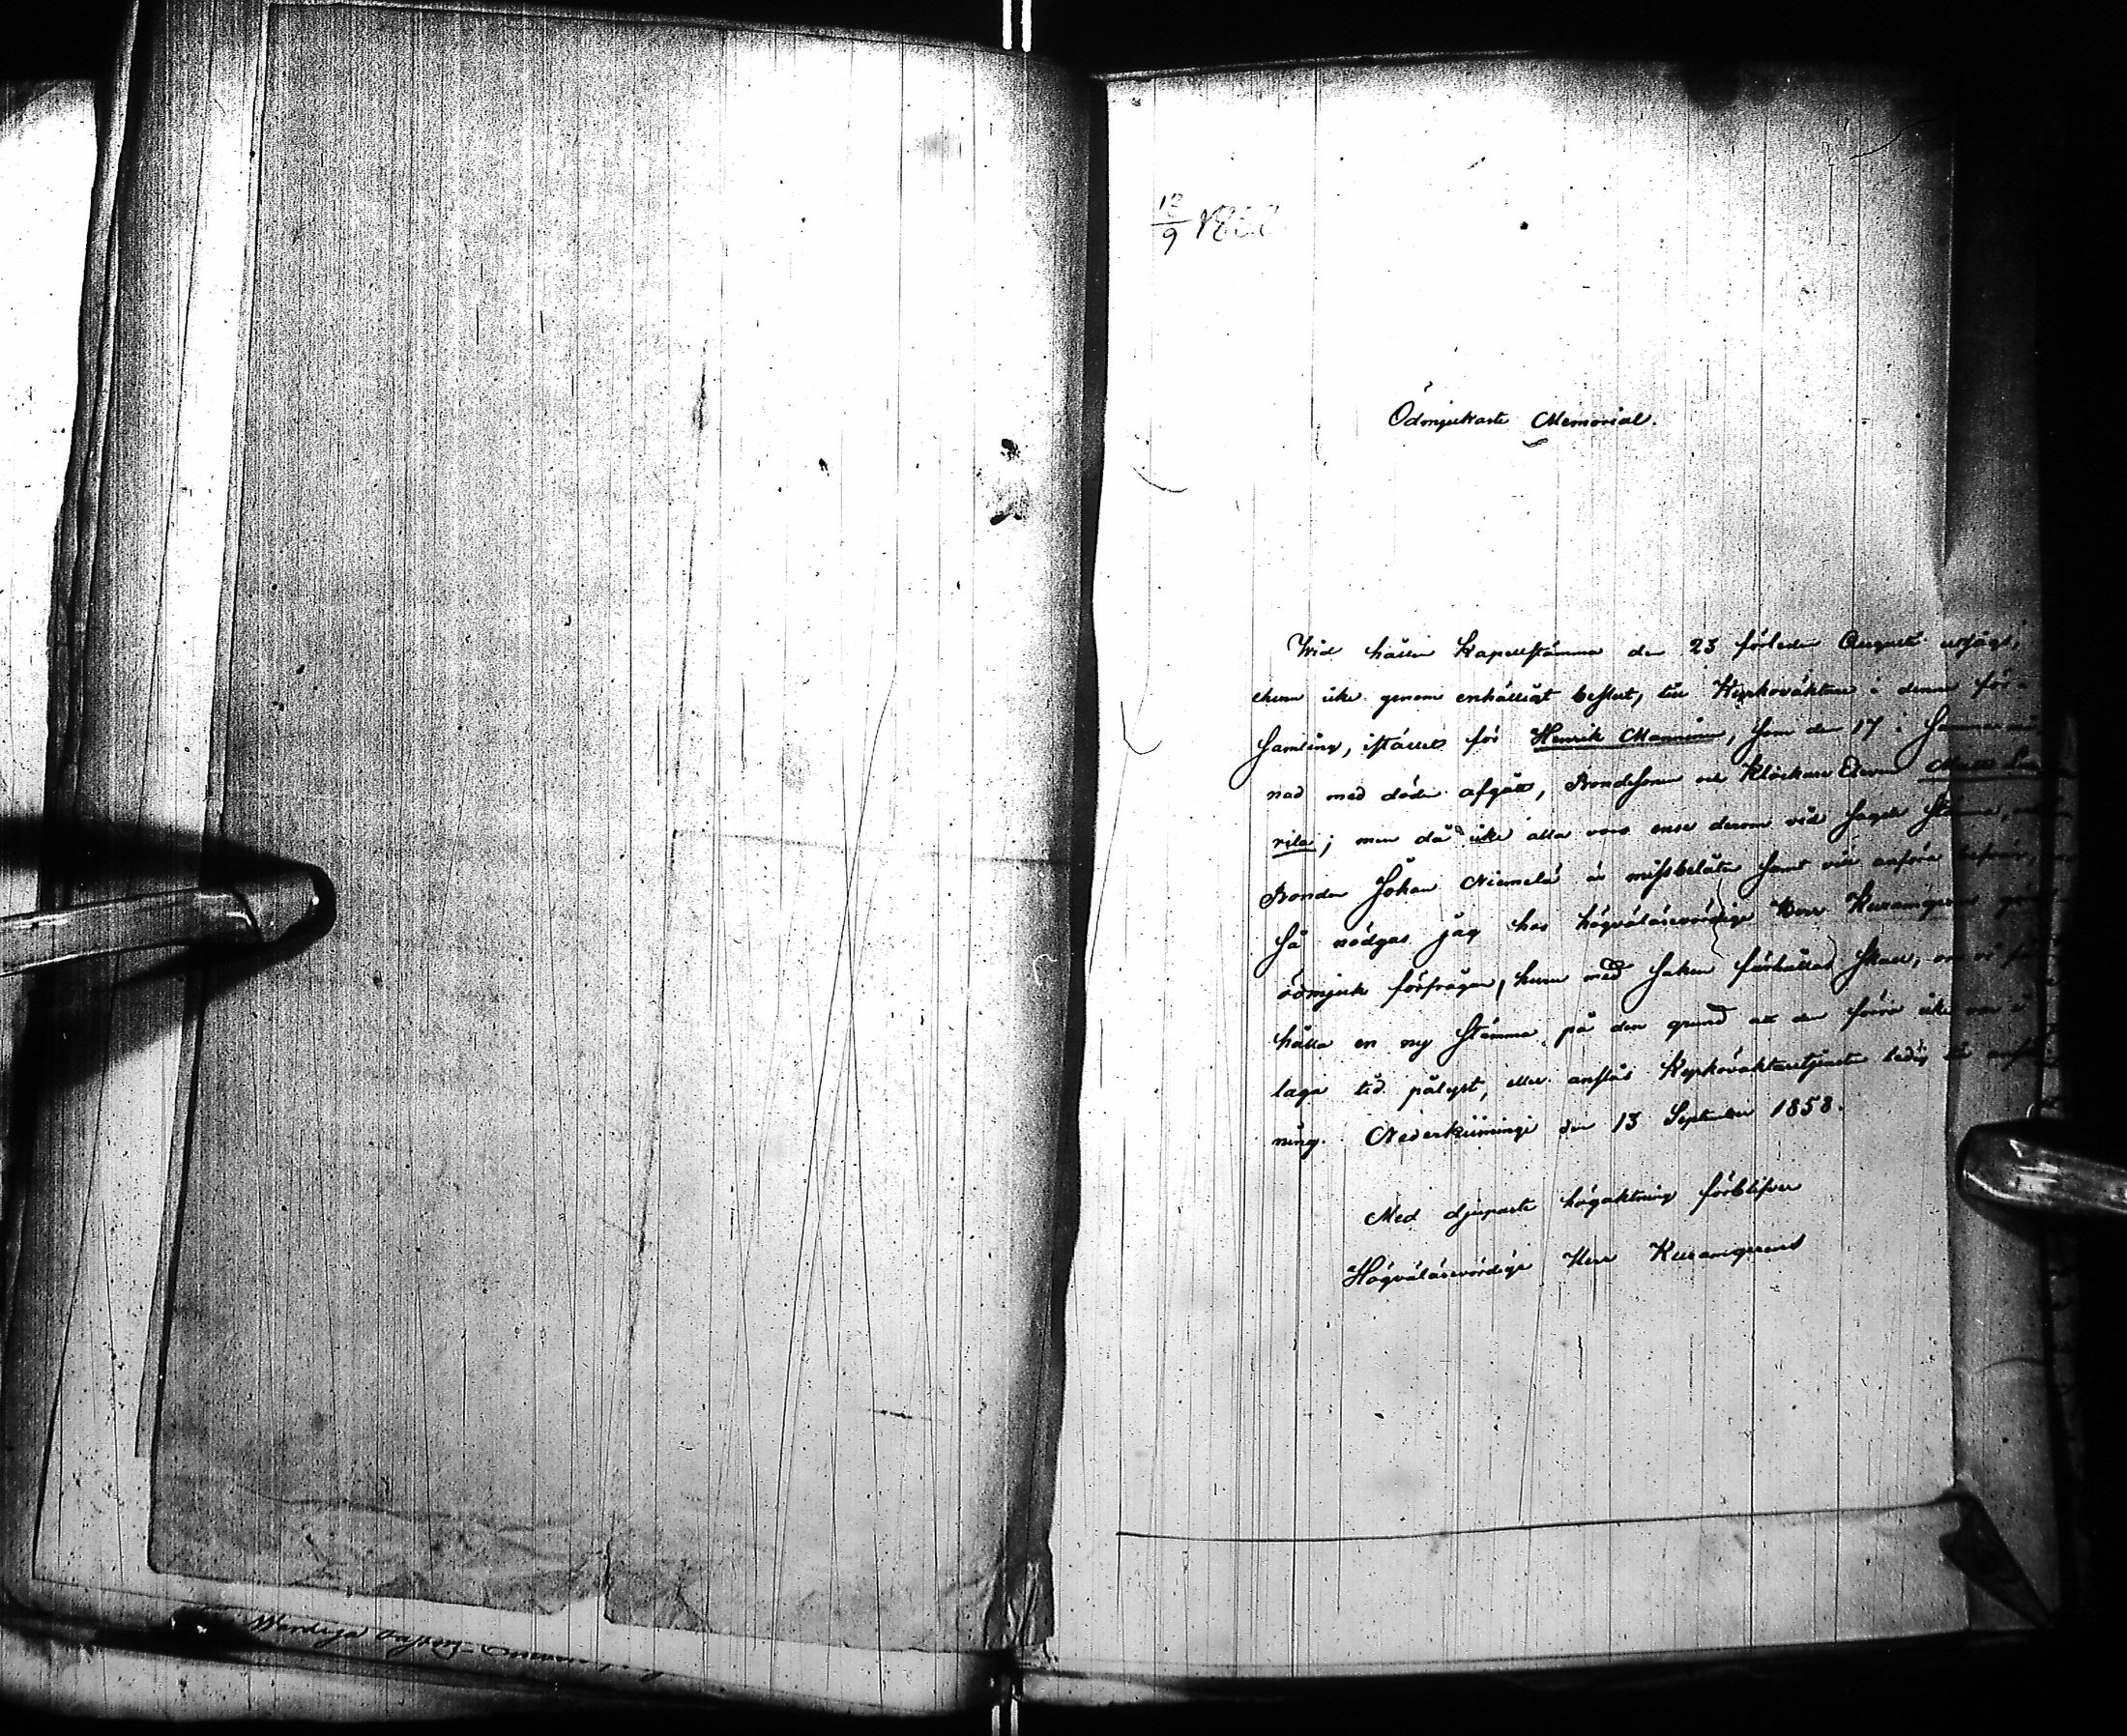 13/9 1858
Ödmjukaste Memorial.
Wid hållen Kapellstämma den 23 förleden Augusti utsågs,
ehuru icke genom enhälligt beslut, till Kyrkoväktare i denna för-
samling, istället för Henrik Manninen, som den 17 i samma må-
nad med döden afgått, Bondesonen och Klockare Eleven Matts
rila; men då icke alla voro ense derom vid sagde stämma,
Bonden Johan Niemelä är missbelåten samt vill anföra besvär,
så nödgas jag hos högvälärevördige Herr Kuramgeren göra
ödmjuk förfrågan, huru med saken förhållas skall, om vi få
hålla en ny stämma på den grund att den förra icke var å
laga tid pålyst, eller anslås Kyrkoväktaretjensten ledig till ansök
ning. Nederkiiminge den 13 September 1858.
Med djupaste högaktning förblifver
Högvälärevördige Herr Kuramgerens
Werdiga